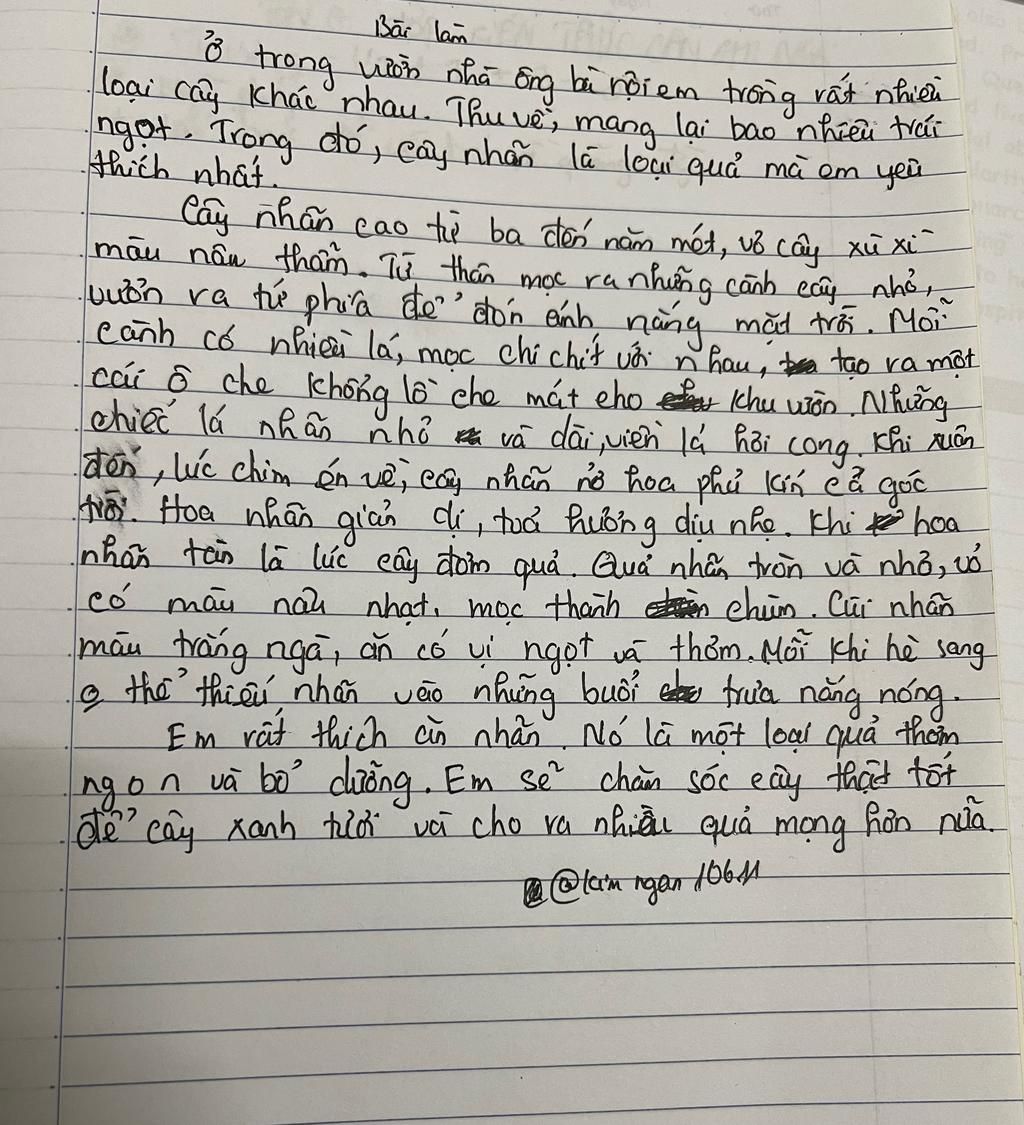 Bài làm
Ở trong vườn nhà ông bà nội em trồng rất nhiều
loại cây khác nhau. Thu về, mang lại bao nhiêu trái
ngọt. Trong đó, cây nhãn là loại quả mà em yêu
thích nhất.
Cây nhãn cao từ ba đến năm mét, vỏ cây xù xì
màu nâu thẫm. Từ thân mọc ra những cành cây nhỏ,
vươn ra tứ phía để đón ánh nắng mặt trời. Mỗi
cành có nhiều lá, mọc chi chít với nhau, tạo ra một
cái ô che khổng lồ che mát cho khu vườn. Những
chiếc lá nhãn nhỏ và dài, viền lá hơi cong. Khi xuân
đến, lúc chim én về, cây nhãn nở hoa phủ kín cả góc
trời. Hoa nhãn giản dị, toả hương dịu nhẹ. Khi hoa
nhãn tàn là lúc cây đơm quả. Quả nhãn tròn và nhỏ, vỏ
có màu nâu nhạt, mọc thành chùm. Cùi nhãn
màu trắng ngà, ăn có vị ngọt và thơm. Mỗi khi hè sang
thể thiếu nhãn vào những buổi trưa nắng nóng.
Em rất thích ăn nhãn. Nó là một loại quả thơm
ngon và bổ dưỡng. Em sẽ chăm sóc cây thật tốt
để cây xanh tươi và cho ra nhiều quả mọng hơn nữa.
@kim ngan 10611